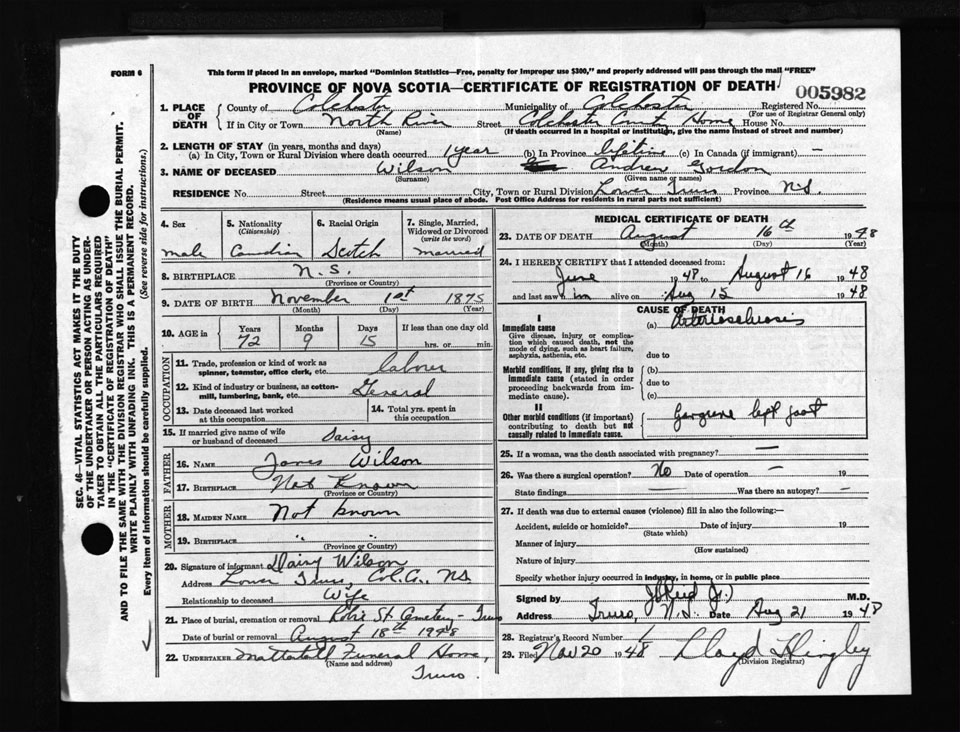 FORM 6
This form if placed in an envelope, marked "Dominion Statistics—Free, penalty for improper use $300," and properly addressed will pass through the mail "FREE"
PROVINCE OF NOVA SCOTIA—CERTIFICATE OF REGISTRATION OF DEATH
005982
1. PLACE OF DEATH
County of Colchester Municipality of Colchester Registered No.
(For use of Registrar General only)
If in City or Town North River Street Colchester County Home House No.
(Name) (If death occurred in a hospital or institution, give the name instead of street and number)
2. LENGTH OF STAY (in years, months and days)
(a) In City, Town or Rural Division where death occurred 1 year (b) In Province lifetime (c) In Canada (if immigrant) —
3. NAME OF DECEASED Wilson Andrew Gordon
(Surname) (Given name or names)
RESIDENCE No. Street City, Town or Rural Division Lower Truro Province N.S.
(Residence means usual place of abode. Post Office Address for residents in rural parts not sufficient)
4. Sex
male
5. Nationality
(Citizenship)
Canadian
6. Racial Origin
Scotch
7. Single, Married, Widowed or Divorced
(write the word)
married
8. BIRTHPLACE N.S.
(Province or Country)
9. DATE OF BIRTH November 1st 1875
(Month) (Day) (Year)
10. AGE in
Years Months Days If less than one day old
72 9 15 hrs. or min.
OCCUPATION
11. Trade, profession or kind of work as spinner, teamster, office clerk, etc. laborer
12. Kind of industry or business, as cotton-mill, lumbering, bank, etc. General
13. Date deceased last worked at this occupation
14. Total yrs. spent in this occupation
15. If married give name of wife or husband of deceased Daisy
FATHER
16. NAME James Wilson
17. BIRTHPLACE Not Known
(Province or Country)
MOTHER
18. MAIDEN NAME Not known
19. BIRTHPLACE " "
(Province or Country)
20. Signature of informant Daisy Wilson
Address Lower Truro, Col. Co., N.S.
Relationship to deceased Wife
21. Place of burial, cremation or removal Robie St. Cemetery - Truro
Date of burial or removal August 18th 1948
22. UNDERTAKER Mattatall Funeral Home,
(Name and address)
Truro.
MEDICAL CERTIFICATE OF DEATH
23. DATE OF DEATH August 16th 1948
(Month) (Day) (Year)
24. I HEREBY CERTIFY that I attended deceased from:
June 1948 to August 16 1948
and last saw him alive on Aug 15 1948
CAUSE OF DEATH
I
Immediate cause
Give disease, injury or complication which caused death, not the mode of dying, such as heart failure, asphyxia, asthenia, etc.
(a) Arteriosclerosis
due to
Morbid conditions, if any, giving rise to immediate cause (stated in order proceeding backwards from immediate cause).
(b)
due to
(c)
II
Other morbid conditions (if important) contributing to death but not causally related to immediate cause.
Gangrene left foot
25. If a woman, was the death associated with pregnancy? —
26. Was there a surgical operation? No Date of operation — 19
State findings — Was there an autopsy? —
27. If death was due to external causes (violence) fill in also the following:—
Accident, suicide or homicide? Date of injury 19
(State which)
Manner of injury
(How sustained)
Nature of injury
Specify whether injury occurred in industry, in home, or in public place
Signed by M.D.
Address Truro, N.S. Date Aug 21 1948
28. Registrar's Record Number
29. Filed Nov 20 1948 Lloyd Hingley
(Division Registrar)
SEC. 46—VITAL STATISTICS ACT MAKES IT THE DUTY
OF THE UNDERTAKER OR PERSON ACTING AS UNDER-
TAKER TO OBTAIN ALL THE PARTICULARS REQUIRED
IN THE "CERTIFICATE OF REGISTRATION OF DEATH"
AND TO FILE THE SAME WITH THE DIVISION REGISTRAR WHO SHALL ISSUE THE BURIAL PERMIT.
WRITE PLAINLY WITH UNFADING INK. THIS IS A PERMANENT RECORD.
Every item of information should be carefully supplied. (See reverse side for instructions.)